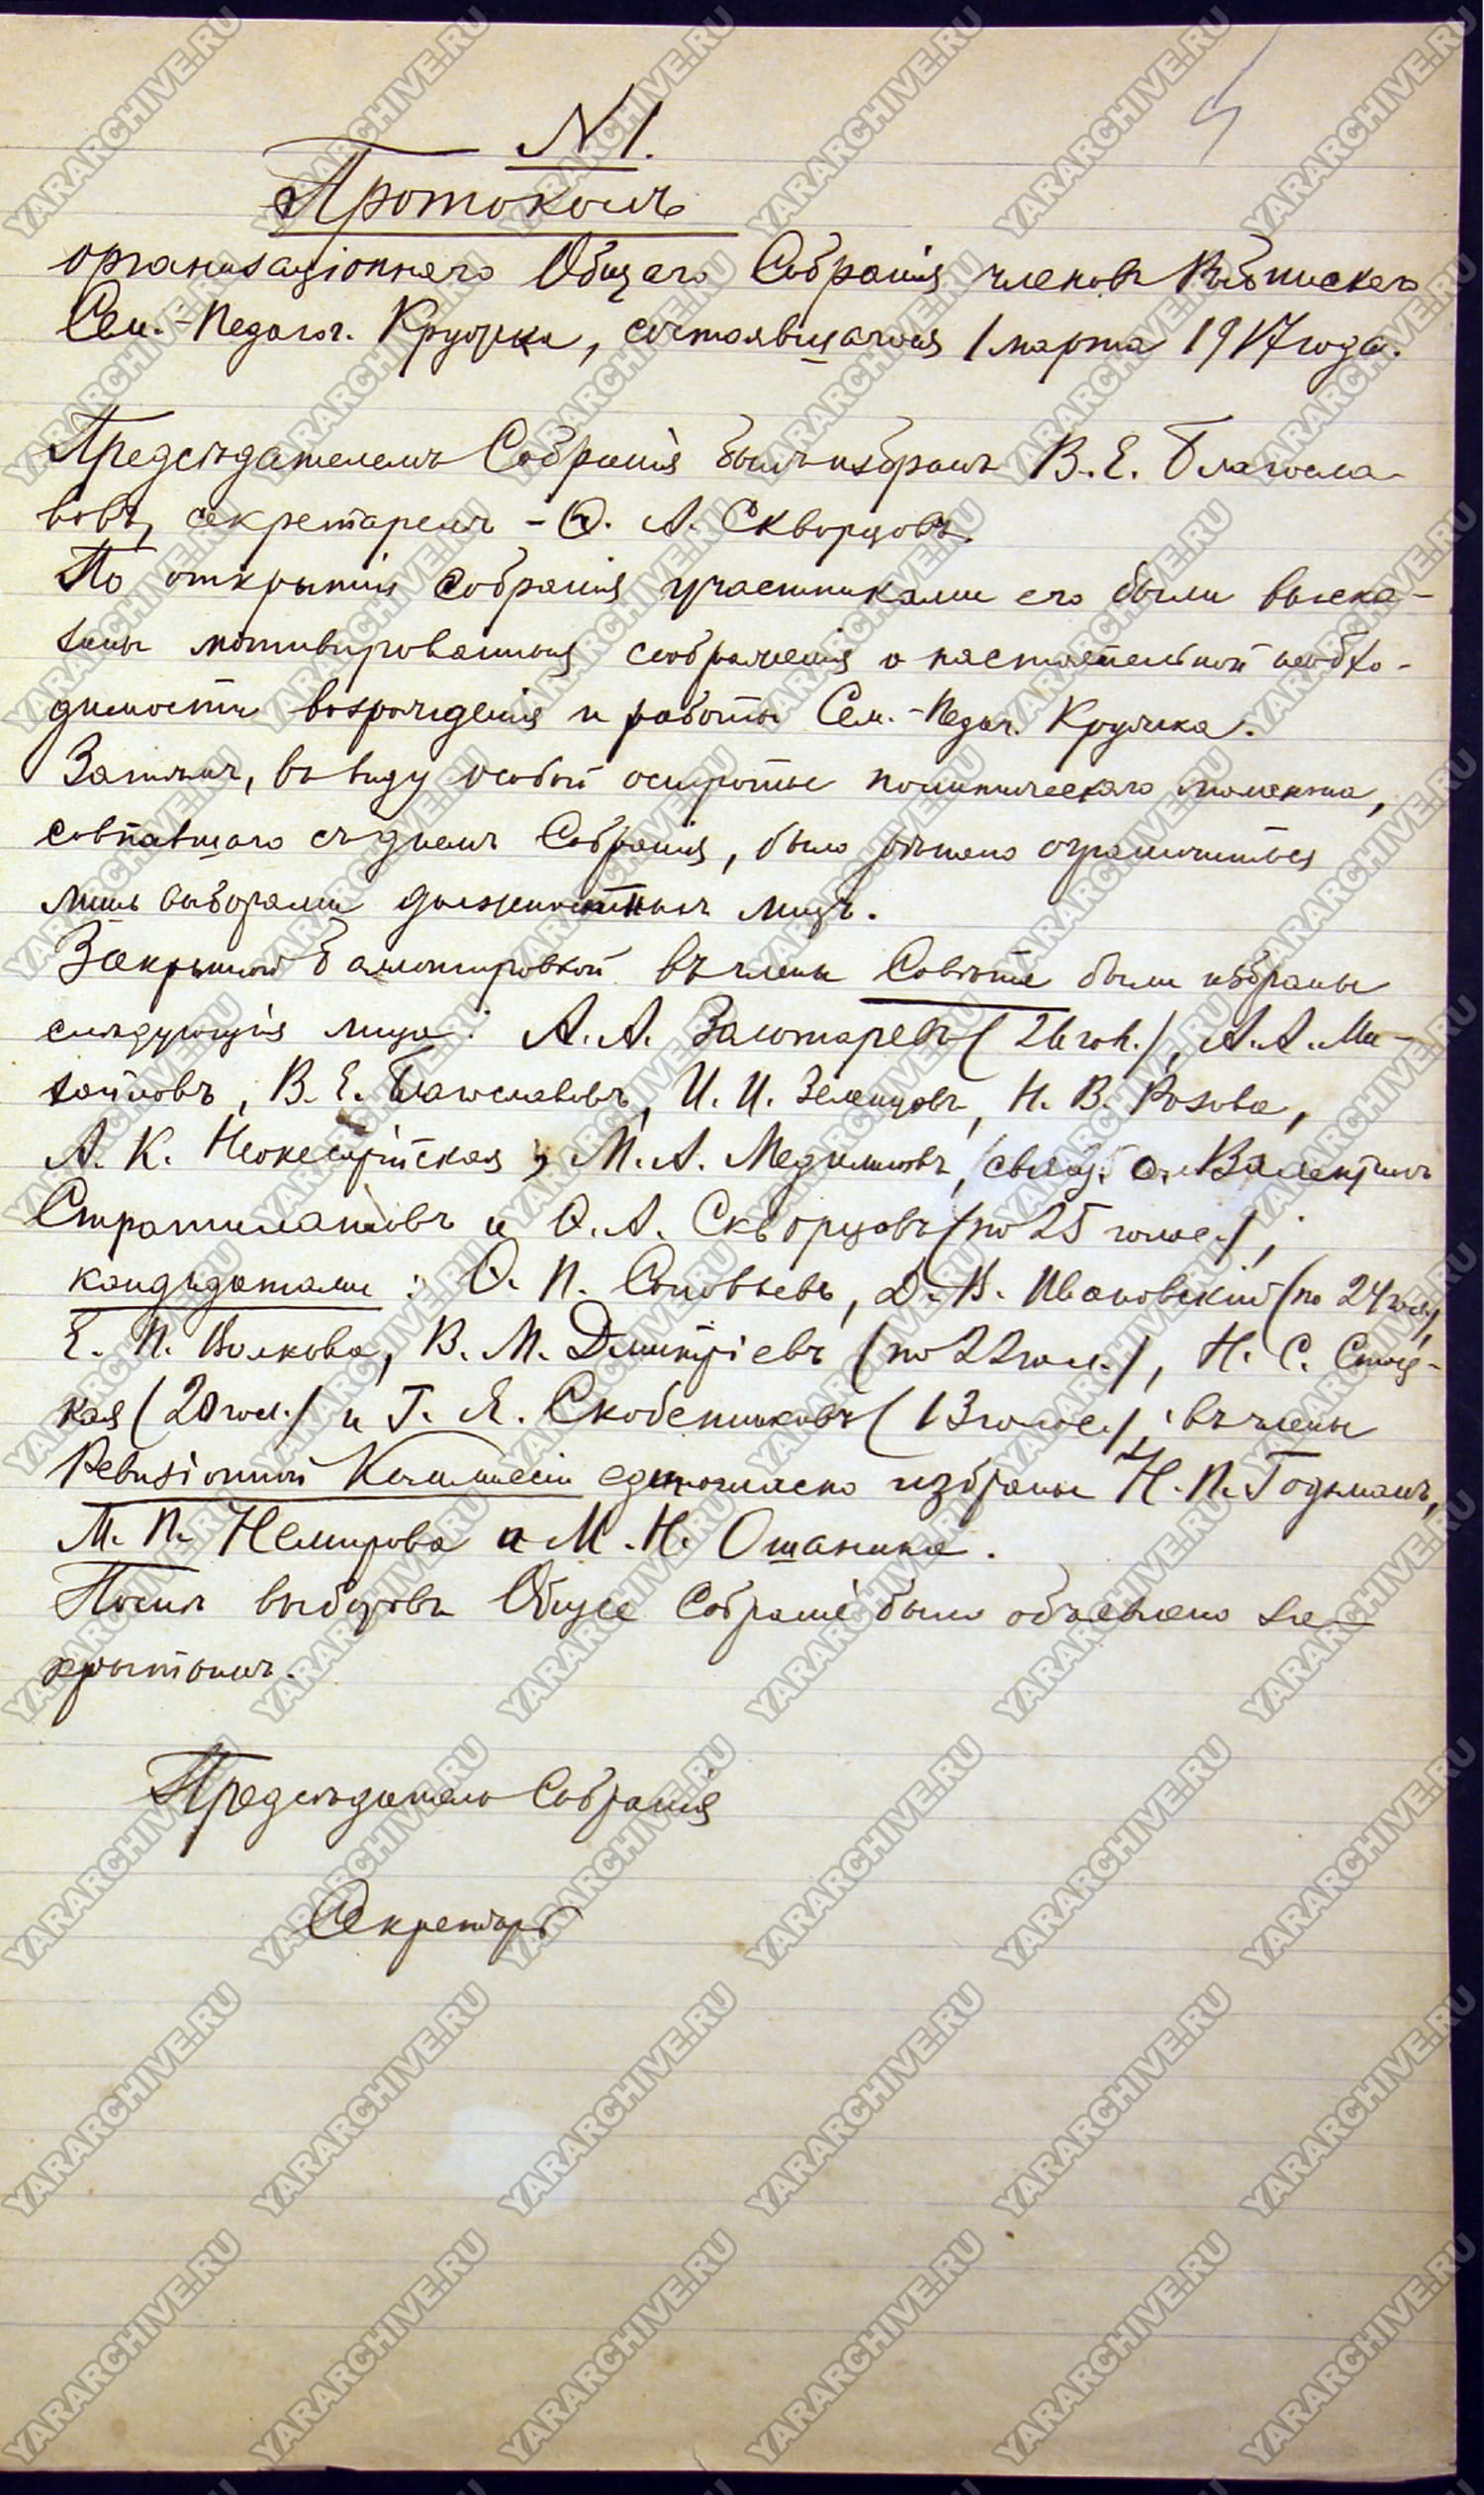 N 1.
Протоколъ
организаціоннаго Общаго Собранія членовъ Рыбинскаго
Сем.-Педагог. Кружка, состоявшагося 1 марта 1917 года.
Предсѣдателемъ Собранія былъ избранъ В. Е. Благосла-
вовъ, секретаремъ - Ѳ. А. Скворцовъ.
По открытіи собранія участниками его были выска-
заны мотивированныя соображенія о настоятельной необхо-
димости возрожденія и работы Сем.-Педаг. Кружка.
Затѣмъ, въ виду особой остроты политическаго момента,
совпавшаго съ днемъ Собранія, было рѣшено ограничиться
лишь выборами должностныхъ лицъ.
Закрытой баллотировкой въ члены Совѣта были избраны
слѣдующія лица: А. А. Золотаревъ (26 гол.), А. А.
В. Е. Благославовъ, И. И. Зеленцовъ, Н. В. Розова,
А. К. Неокесарійская, М. А. Медиллинъ, свящ. о. Валентинъ
Стратилатовъ и Ѳ. А. Скворцовъ (по 25 голос.);
кандидатами: Ѳ. П. Соловьевъ, Д. Н. Ивановскій (по 24 гол.),
Е. П. Волкова, В. М. Дмитріевъ (по 22 гол.), Н. С.
кая (20 гол.) и Г. Я. Скобенниковъ (13 голос.); въ члены
Ревизіонной Коммиссіи единогласно избраны Н. П. Годманъ,
М. П. Немирова и М. Н. Ошанина.
Послѣ выборовъ Общее Собраніе было объявлено за-
крытымъ.
Предсѣдатель Собранія
Секретарь
YARARCHIVE.RU